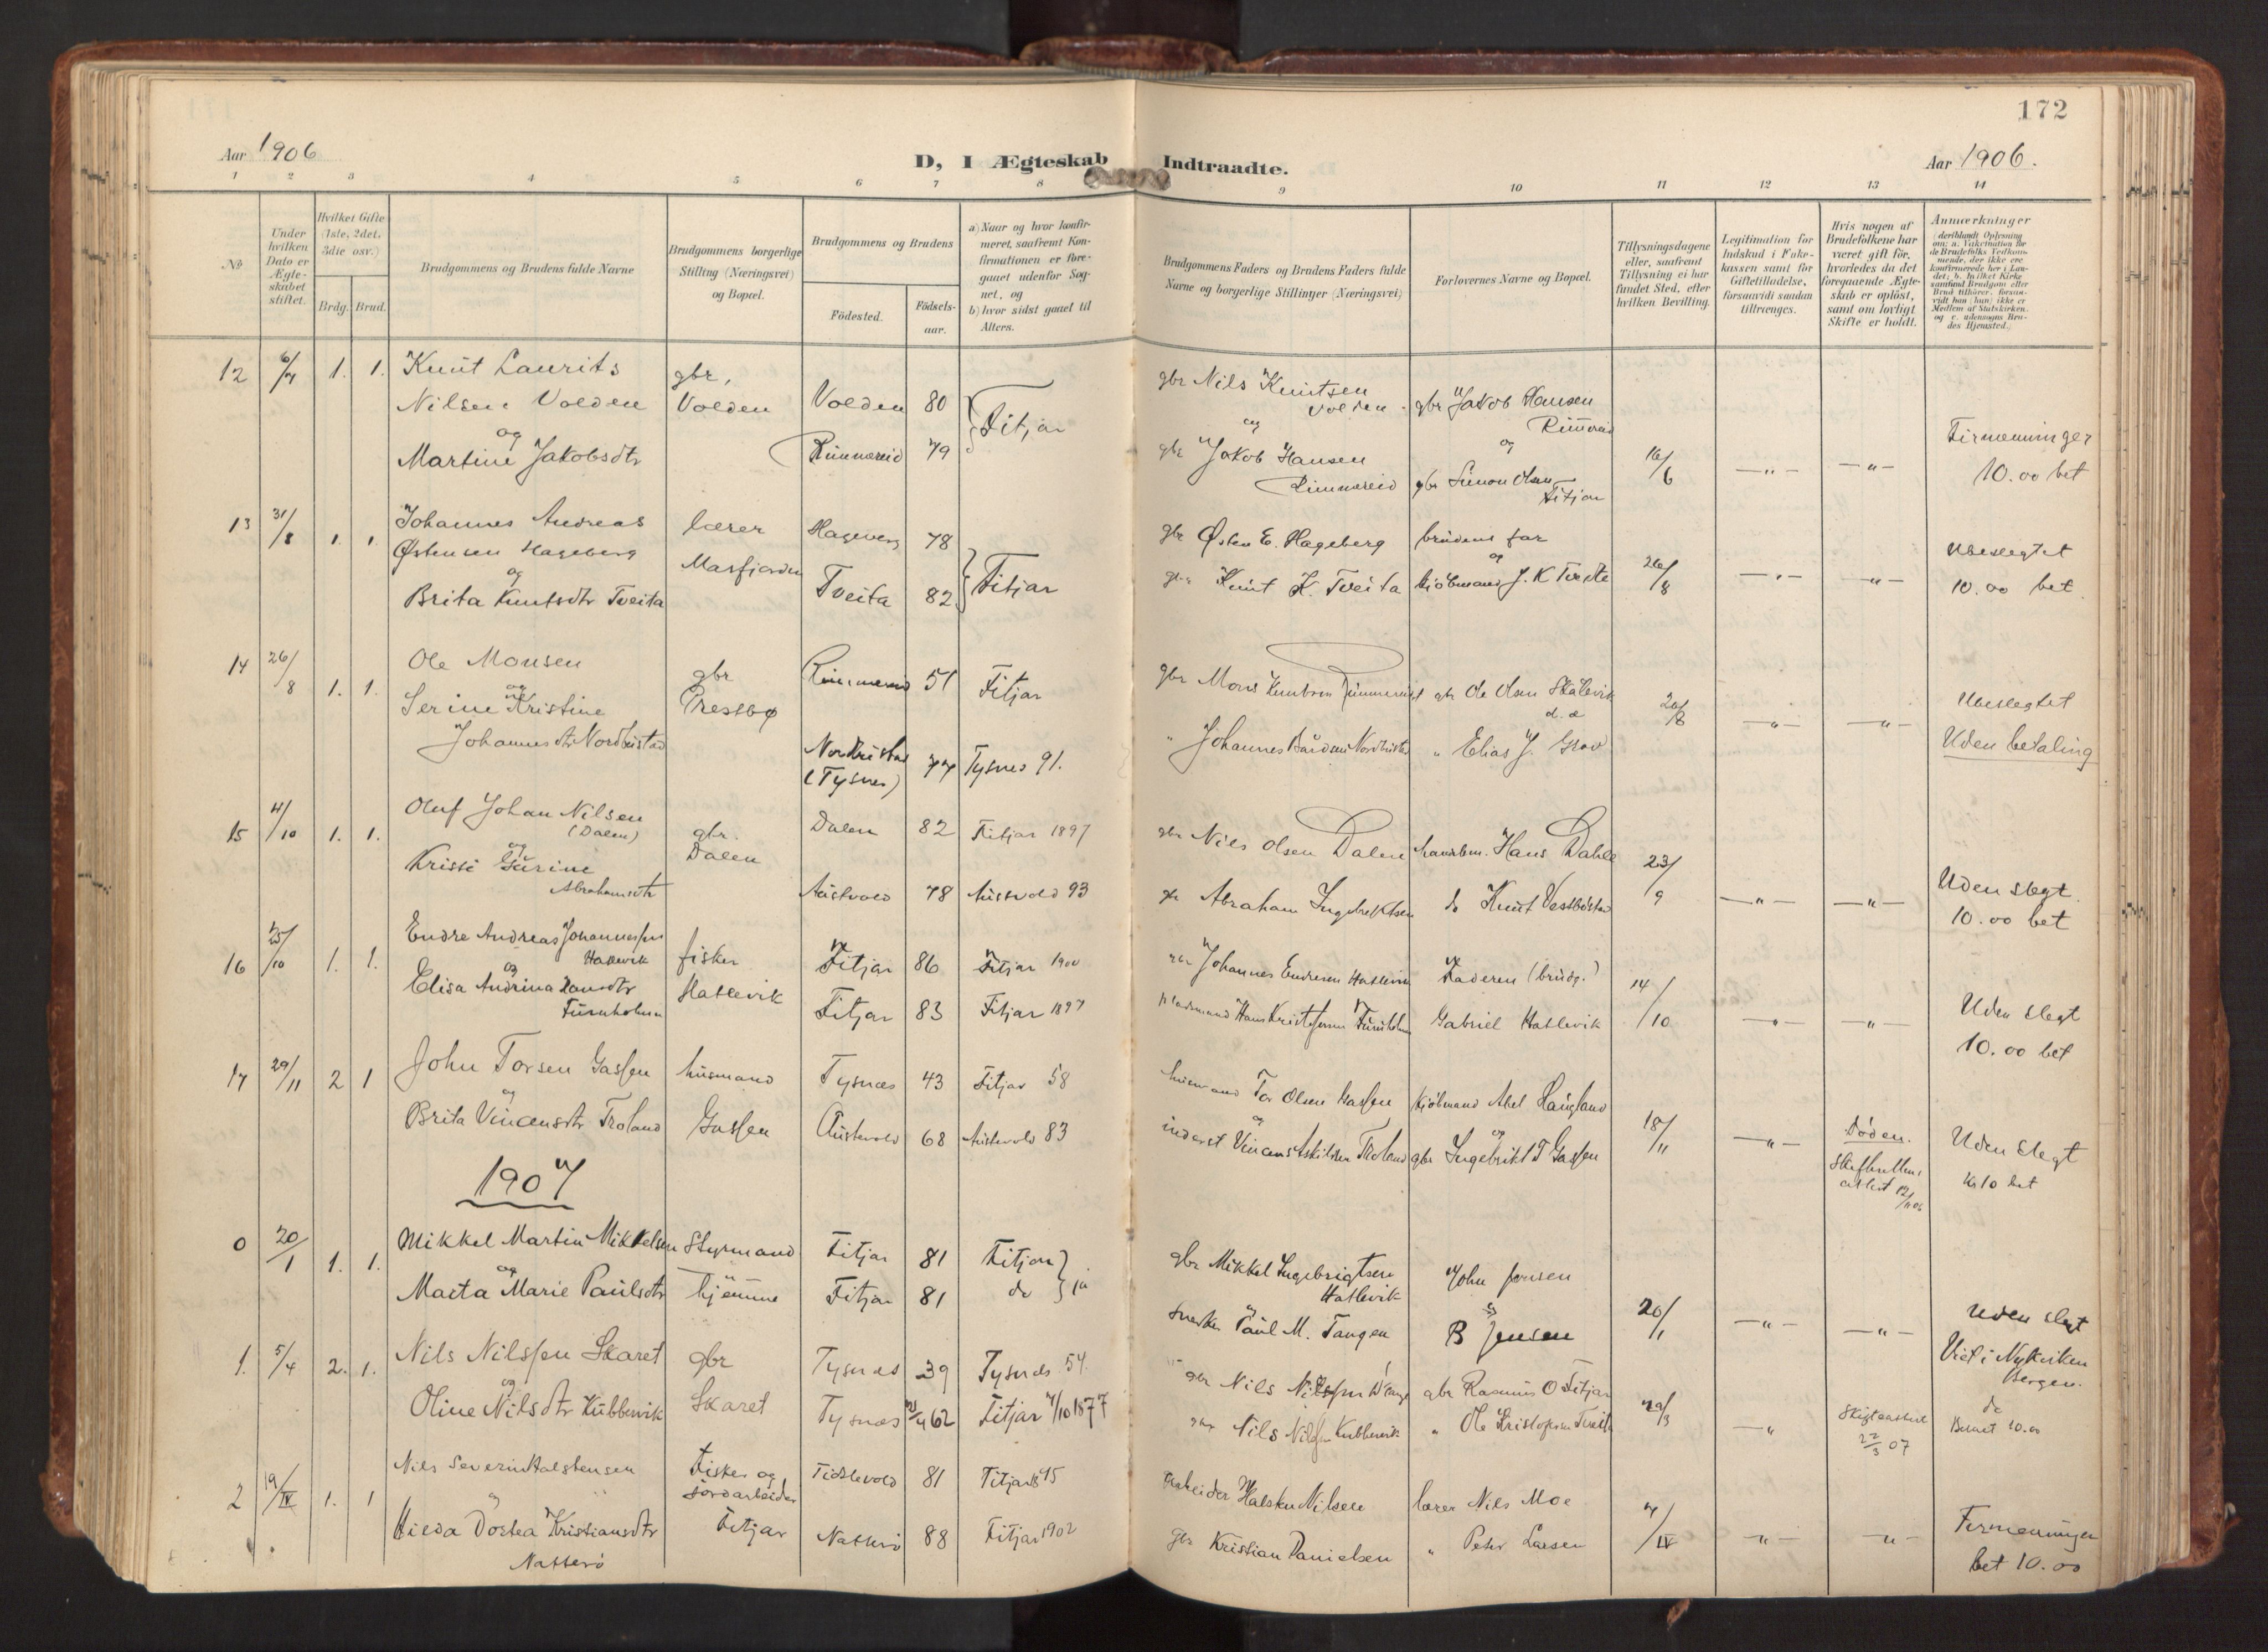 172
Aar 1906
D, I Ægteskab Indtraadte.
Aar 1906.
1 2 3 4 5 6 7 8 9 10 11 12 13 14
No
Under hvilken Dato er Ægteskabet stiftet.
Hvilket Gifte (1ste, 2det, 3die osv.)
Brdg. Brud.
Brudgommens og Brudens fulde Navne
Brudgommens borgerlige Stilling (Næringsvei) og Bopæl.
Brudgommens og Brudens
Födested.
Födsels-aar.
a) Naar og hvor konfirmeret, saafremt Konfirmationen er foregaaet udenfor Sognet, og
b) hvor sidst gaaet til Alters.
Brudgommens Faders og Brudens Faders fulde Navne og borgerlige Stillinger (Næringsvei)
Forlovernes Navne og Bopæl.
Tillysningsdagene eller, saafremt Tillysning ei har fundet Sted, efter hvilken Bevilling.
Legitimation for Indskud i Enkekassen samt for Giftetilladelse, forsaavidt saadan tiltrænges.
Hvis nogen af Brudefolkene har været gift för, hvorledes da det foregaaende Ægteskab er oplöst, samt om lovligt Skifte er holdt.
Anmærkninger (deriblandt Oplysning om: a. Vaksination for de Brudefolks Vedkommende, der ikke ere konfirmerede her i Landet; b. hvilket Kirkesamfund Brudgom eller Brud tilhörer, forsaavidt han (hun) ikke er Medlem af Statskirken, og c. udensogns Brudes Hjemsted.)
12 6/7 1. 1. Knut Laurits gbr,
Nilsen Volden Volden Volden 80 Fitjar
og
Martine Jakobsdtr Rimmereid 79
gbr Nils Knutsen Volden
gbr Jakob Hansen
og
gbr Jakob Hansen Rimmereid
og
gbr Simon Olsen Fitjar
16/6 —"— —"— Firmenninger
10.00 bet
13 31/8 1. 1. Johannes Andreas lærer Hageberg 78
Østensen Hageberg Masfjorden
og
Brita Knutsdtr Tveita Tveita 82 Fitjar
gbr Østen E. Hageberg brudens far
og
gbr Knut K. Tveita kjöbmand J. K Tveite
26/8 —"— —"— Ubeslegtet
10.00 bet.
14 26/8 1. 1. Ole Monsen gbr Rimmereid 51 Fitjar
og
Serine Kristine Prestbø
Johannesdtr Nordhustad Nordhustad
(Tysnes) 77 Tysnes 91.
gbr Mons Knutsen Rimmereid gbr Ole Olsen Skålevik
" Johannes Bårdsen " Elias J. Grov
26/8 —"— —"— Ubeslegtet
Uden betaling
15 4/10 1. 1. Oluf Johan Nilsen
(Dalen) gbr. Dalen 82 Fitjar 1897
og Dalen
Krissi Gurine
Abrahamsdtr Austvold 78 Austvold 93
gbr Nils Olsen Dalen handelsm. Hans Dahle
gbr Abraham Ingebriktsen do Knut Vestbøstad
23/9 —"— —"— Uden slegt
10.00 bet
16 25/10 1. 1. Endre Andreas Johannessen
Hatlevik fisker Fitjar 86 Fitjar 1900
og
Elisa Andrina Hansdtr Hatlevik
Furuholmen Fitjar 83 Fitjar 1897
gbr Johannes Endresen Hatlevik Faderen (brudg.)
Pladsmand Hans Kristofersen Furuholmen Gabriel Hatlevik
14/10 —"— —"— Uden slegt
10.00 bet
17 29/11 2 1 John Torsen Gassen husmand Tysnæs 43 Fitjar 58
og
Brita Vincensdtr Troland Gassen Austvold 68 Austevold 83
husmand Tor Olsen Gassen Kjöbmand Abel Haugland
og og
inderst Vincens Askildsen Troland gbr Ingebrikt T Gassen
18/11 —"— Döden.
attest 12/11 06
Uden slegt
Kr 10 bet
1907
0 20/1 1. 1. Mikkel Martin Mikkelsen Styrmand Fitjar 81 Fitjar
og
Marta Marie Paulsdtr hjemme Fitjar 81 do ja
gbr Mikkel Ingebrigtsen
Hatlevik John Jensen
og
Snekker Paul M. Tangen B Jensen
20/1 —"— —"— Uden slegt
Viet i Nykirken
Bergen.
1. 5/4 2. 1. Nils Nilssen Skaret gbr Tysnæs 39 Tysnæs 54.
og
Oline Nilsdtr Kubbervik Skaret Tysnæs 62 Fitjar 7/10 1877
gbr Nils Nilssen gbr Rasmus O Fitjar
gbr Nils Nilssen Kubbervik " Ole Kristofersen Tveita
" Skifteattest
22/3 07
do
Betalt 10.00
2 19/IV 1. 1 Nils Severin Halstensen Fisker og
jordarbeider Fidslevold 81 Fitjar 95
og
Hilda Dortea Kristiansdtr Fitjar
Natterö Natterö 88 Fitjar 1902
Arbeider Halsten Nilsen lærer Nils Moe
gbr Kristian Danielsen " Peter Larsen
7/IV —"— —"— Firmenninger
bet 10.00